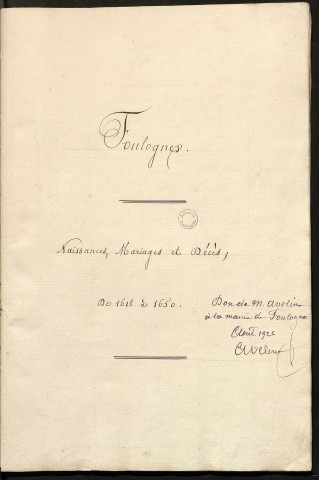 Foulognes.
Naissances, Mariages et Décès,
De 1618 à 1650.
Don de M. Avolin
à la mairie de Foulognes
Août 192